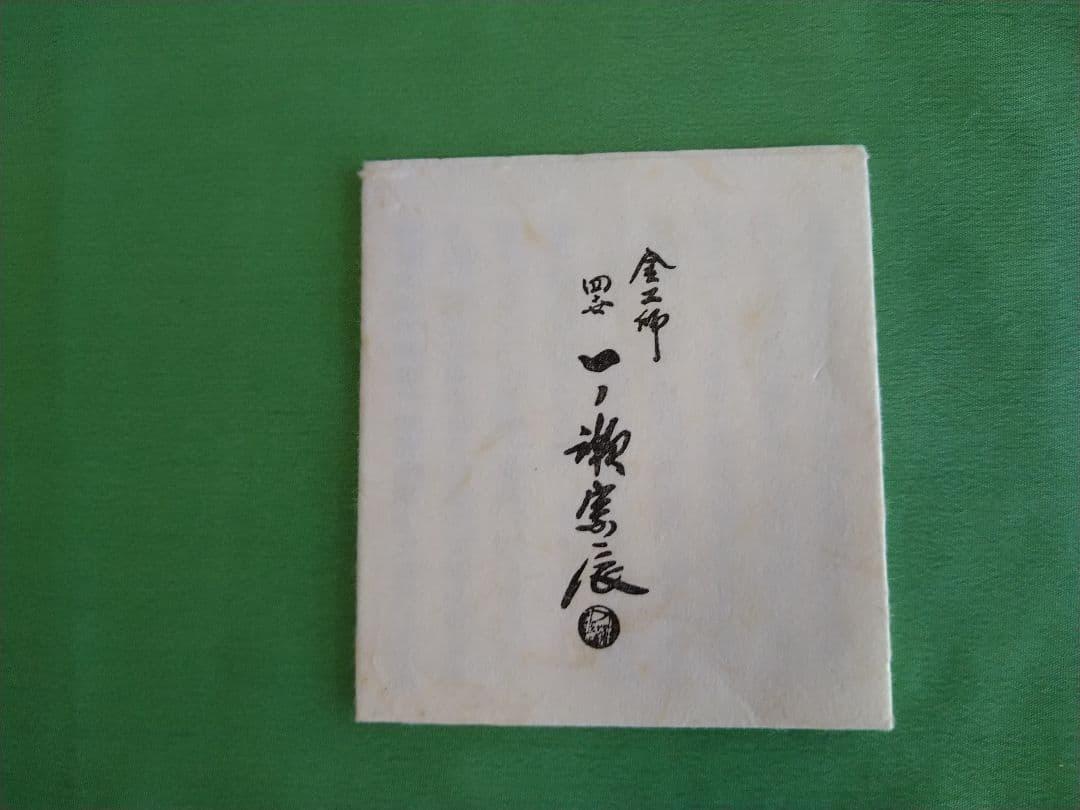 金工師
四世 一ノ瀬宗辰